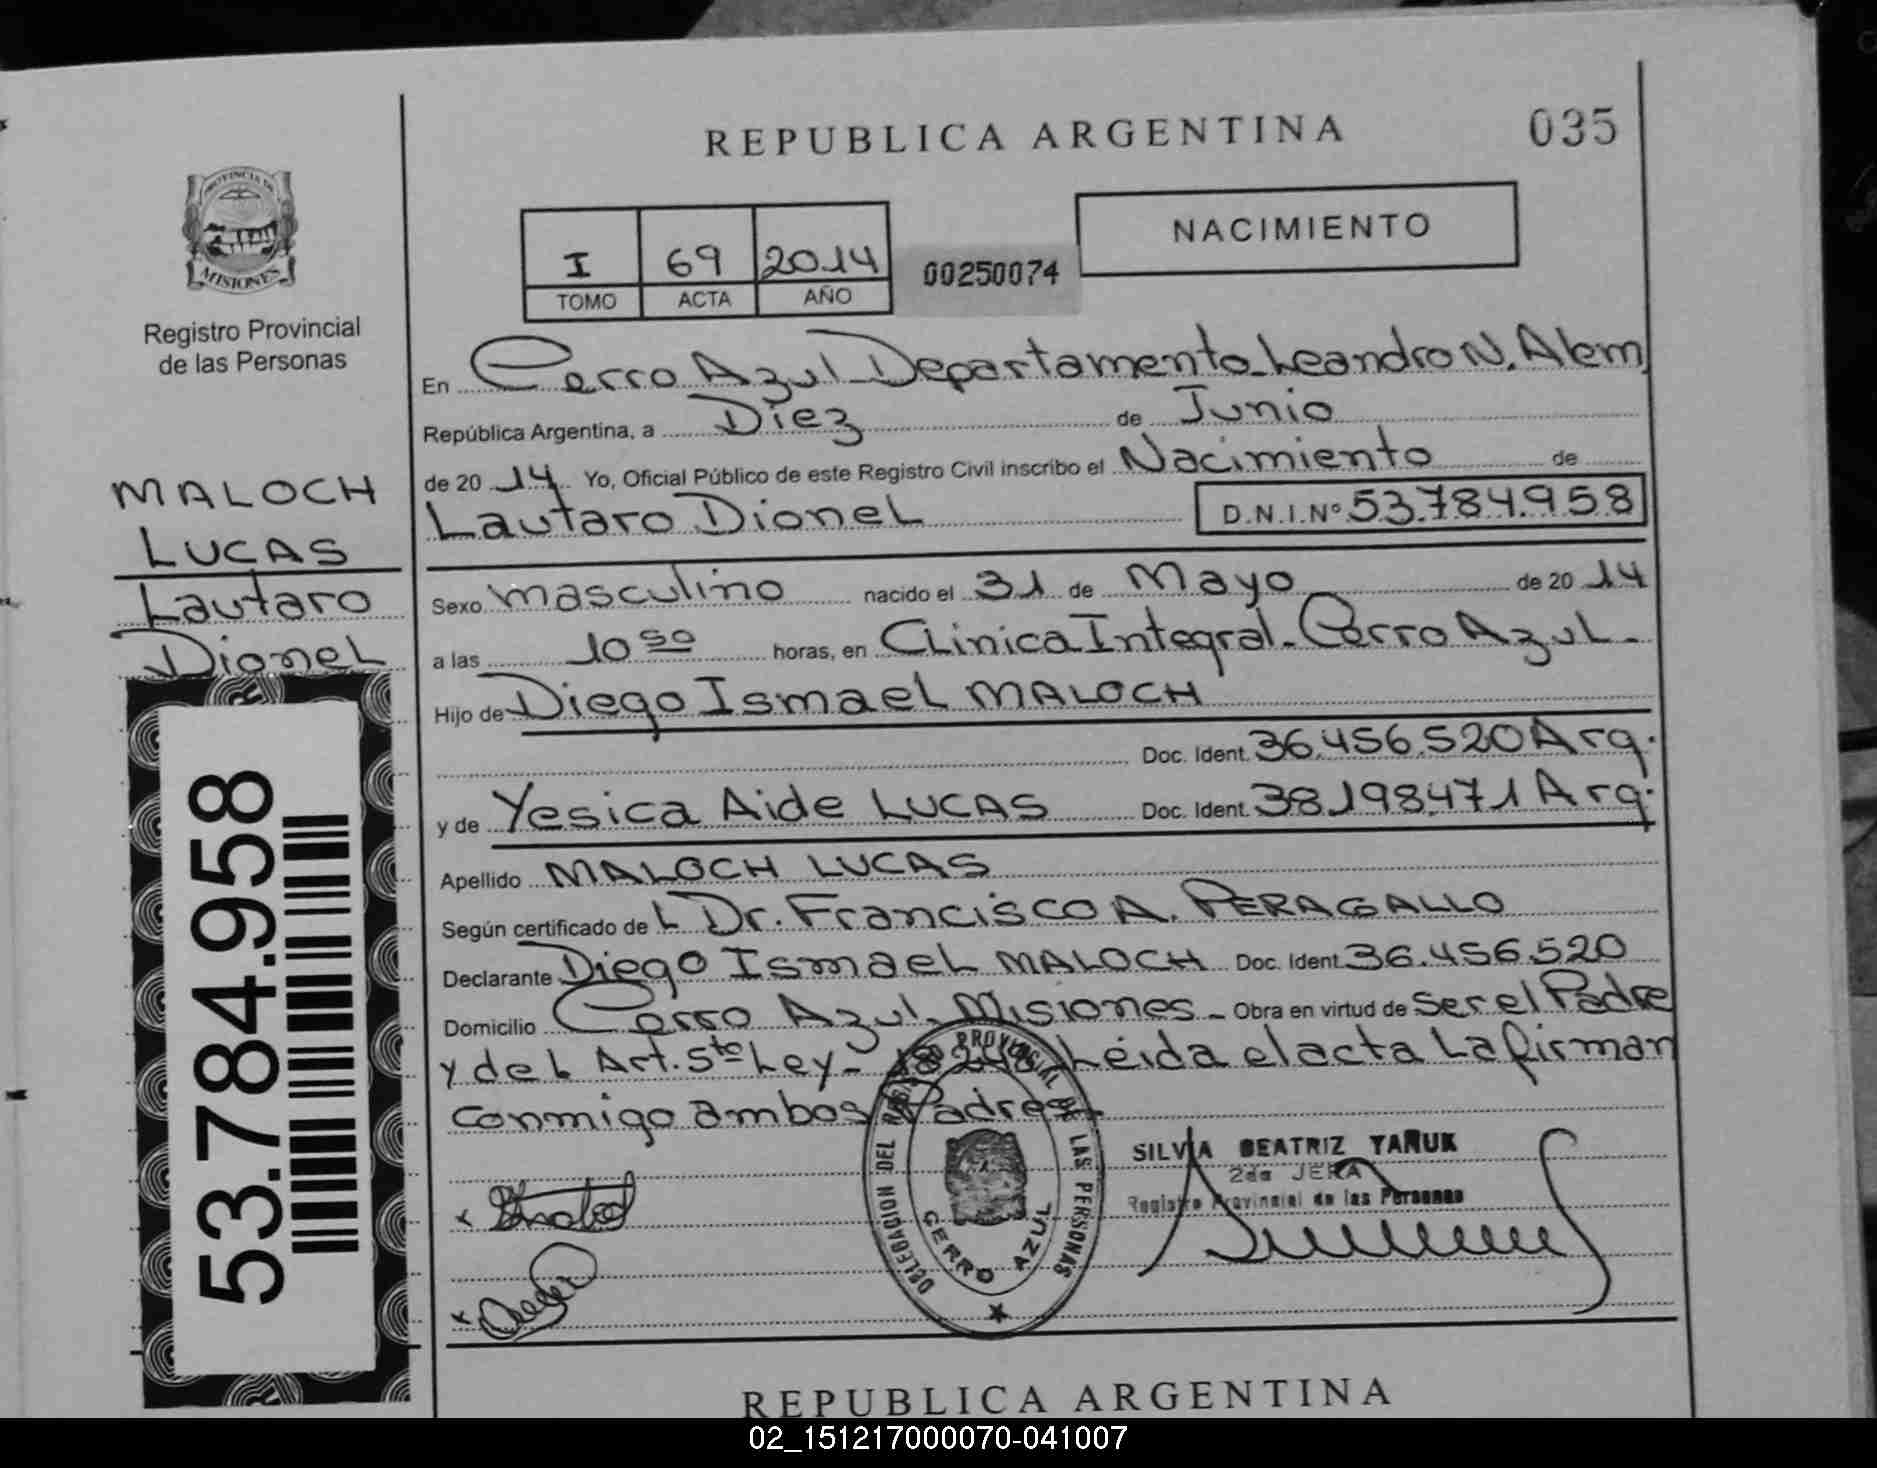 REPUBLICA ARGENTINA
035
PROVINCIA DE
MISIONES
Registro Provincial
de las Personas
I 69 2014
TOMO ACTA AÑO
00250074
NACIMIENTO
MALOCH
LUCAS
Lautaro
Dionel
53.784.958
En Cerro Azul Departamento Leandro N. Alem
República Argentina, a Diez de Junio
de 20 14 Yo, Oficial Público de este Registro Civil inscribo el Nacimiento de
Lautaro Dionel D.N.I.Nº 53.784.958
Sexo masculino nacido el 31 de Mayo de 20 14
a las 10 50 horas, en Clinica Integral - Cerro Azul -
Hijo de Diego Ismael MALOCH
Doc. Ident. 36.456.520 Arg.
y de Yesica Aide LUCAS Doc. Ident. 38.198.471 Arg.
Apellido MALOCH LUCAS
Según certificado de L Dr. Francisco A. PERAGALLO
Declarante Diego Ismael MALOCH Doc. Ident. 36.456.520
Domicilio Cerro Azul - Misiones - Obra en virtud de Ser el Padre
y del Art. 5to Ley - 18248 Leida el acta La firman
conmigo ambos Padres -
DELEGACION DEL REGISTRO PROVINCIAL DE LAS PERSONAS
CERRO AZUL
SILVIA BEATRIZ YAÑUK
2da JEFA
Registro Provincial de las Personas
REPUBLICA ARGENTINA
02_151217000070-041007